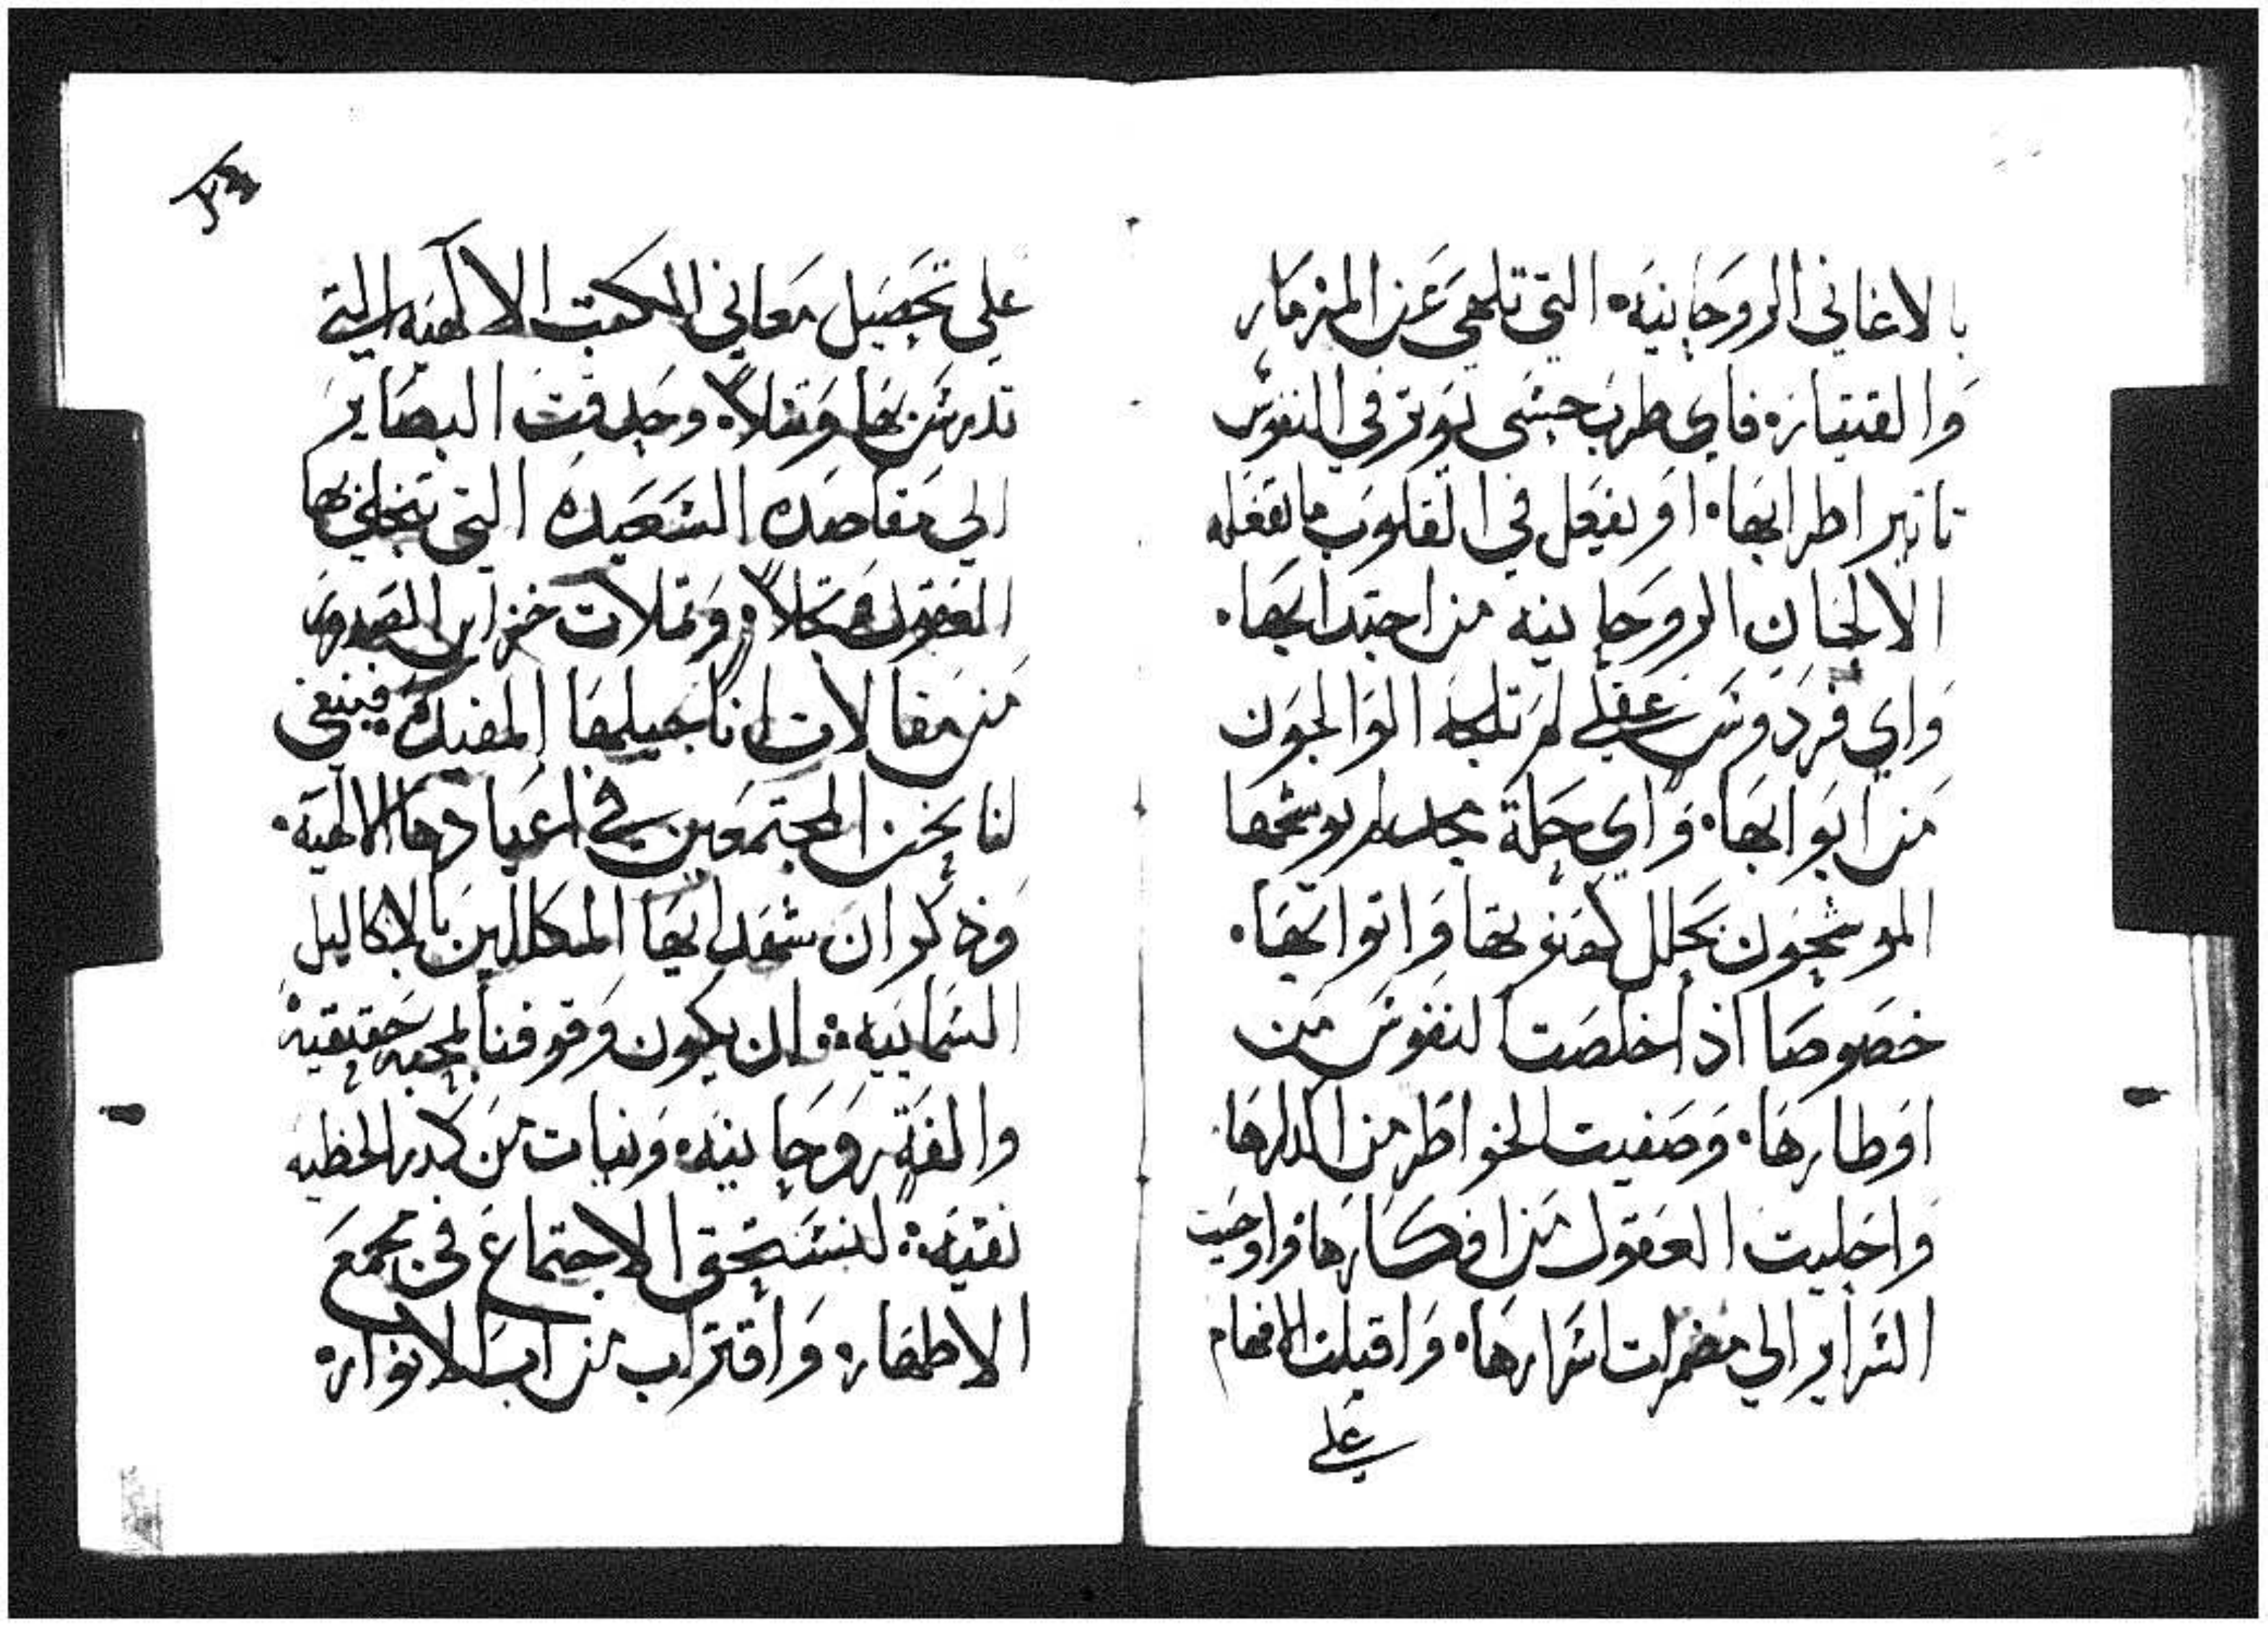 بالاغاني الروحانيه. التي تلهي عن المزمار
والقيتاره فاي طرب حسي يوتر في النفوس
تاتير اطرابها. او يفعل في القلوب ما تفعله
الالحان الروحانيه من اجتدابها.
واي فردوس عقلي لم تلجه الوالجون
من ابوابها. واي حلة مجد لم يوشحها
الموشحون بحلل كهنوتها واتوابها.
خصوصا اذا خلصت النفوس من
اوطارها. وصفيت الخواطر من اكدارها.
واخليت العقول من افكارها واوحيت
السراير الي مضمرات اسرارها. واقبلت الافهام
علي
علي تحصيل معاني الكتب الالهيه التي
تدرس بها وتتلا. وحدقت البصاير
الي مقاصده السعيده التي تتحلي بها
العقول وتملات خزاين الصدور
من مقالات اناجيلها المفيده فينبغي
لنا نحن المجتمعين في اعيادها الالهية.
وذكران شهدايها المكللين بالاكاليل
السماييه: ان يكون وقوفنا بمحبه حقيقيه
والفة روحانيه. ونيات من كدر الخطيه
نقيه: لنستحق الاجتماع في مجمع
الاطهار. واقترب من اب الانوار.